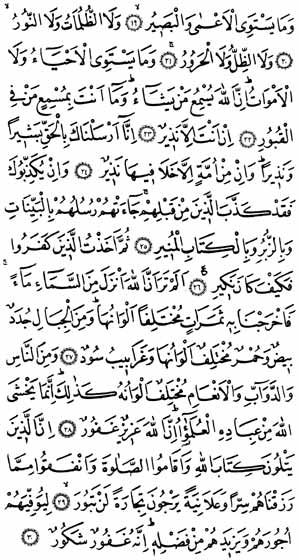 وَمَا يَسْتَوِي الْاَعْمٰى وَالْبَصِيْرُ ۙ ﴿١٩﴾ وَلَا الظُّلُمَاتُ وَلَا النُّوْرُ ۙ
﴿٢٠﴾ وَلَا الظِّلُّ وَلَا الْحَرُوْرُ ۚ ﴿٢١﴾ وَمَا يَسْتَوِي الْاَحْيَاءُ وَلَا
الْاَمْوَاتُ ؕ اِنَّ اللهَ يُسْمِعُ مَنْ يَشَاءُ ۚ وَمَا اَنْتَ بِمُسْمِعٍ مَنْ فِي
الْقُبُوْرِ ﴿٢٢﴾ اِنْ اَنْتَ اِلَّا نَذِيْرٌ ﴿٢٣﴾ اِنَّا اَرْسَلْنَاكَ بِالْحَقِّ بَشِيْرًا
وَنَذِيْرًا ؕ وَاِنْ مِنْ اُمَّةٍ اِلَّا خَلَا فِيْهَا نَذِيْرٌ ﴿٢٤﴾ وَاِنْ يُكَذِّبُوْكَ
فَقَدْ كَذَّبَ الَّذِيْنَ مِنْ قَبْلِهِمْ ۚ جَاءَتْهُمْ رُسُلُهُمْ بِالْبَيِّنَاتِ
وَبِالزُّبُرِ وَبِالْكِتَابِ الْمُنِيْرِ ﴿٢٥﴾ ثُمَّ اَخَذْتُ الَّذِيْنَ كَفَرُوْا
فَكَيْفَ كَانَ نَكِيْرِ ﴿٢٦﴾ اَلَمْ تَرَ اَنَّ اللهَ اَنْزَلَ مِنَ السَّمَاءِ مَاءً ۚ
فَاَخْرَجْنَا بِهٖ ثَمَرَاتٍ مُخْتَلِفًا اَلْوَانُهَا ؕ وَمِنَ الْجِبَالِ جُدَدٌ
بِيْضٌ وَحُمْرٌ مُخْتَلِفٌ اَلْوَانُهَا وَغَرَابِيْبُ سُوْدٌ ﴿٢٧﴾ وَمِنَ النَّاسِ
وَالدَّوَابِّ وَالْاَنْعَامِ مُخْتَلِفٌ اَلْوَانُهُ كَذٰلِكَ ؕ اِنَّمَا يَخْشَى
اللهَ مِنْ عِبَادِهِ الْعُلَمٰٓؤُا ؕ اِنَّ اللهَ عَزِيْزٌ غَفُوْرٌ ﴿٢٨﴾ اِنَّ الَّذِيْنَ
يَتْلُوْنَ كِتَابَ اللهِ وَاَقَامُوا الصَّلٰوةَ وَاَنْفَقُوْا مِمَّا
رَزَقْنَاهُمْ سِرًّا وَعَلَانِيَةً يَرْجُوْنَ تِجَارَةً لَنْ تَبُوْرَ ۙ ﴿٢٩﴾ لِيُوَفِّيَهُمْ
اُجُوْرَهُمْ وَيَزِيْدَهُمْ مِنْ فَضْلِهٖ ؕ اِنَّهُ غَفُوْرٌ شَكُوْرٌ ﴿٣٠﴾